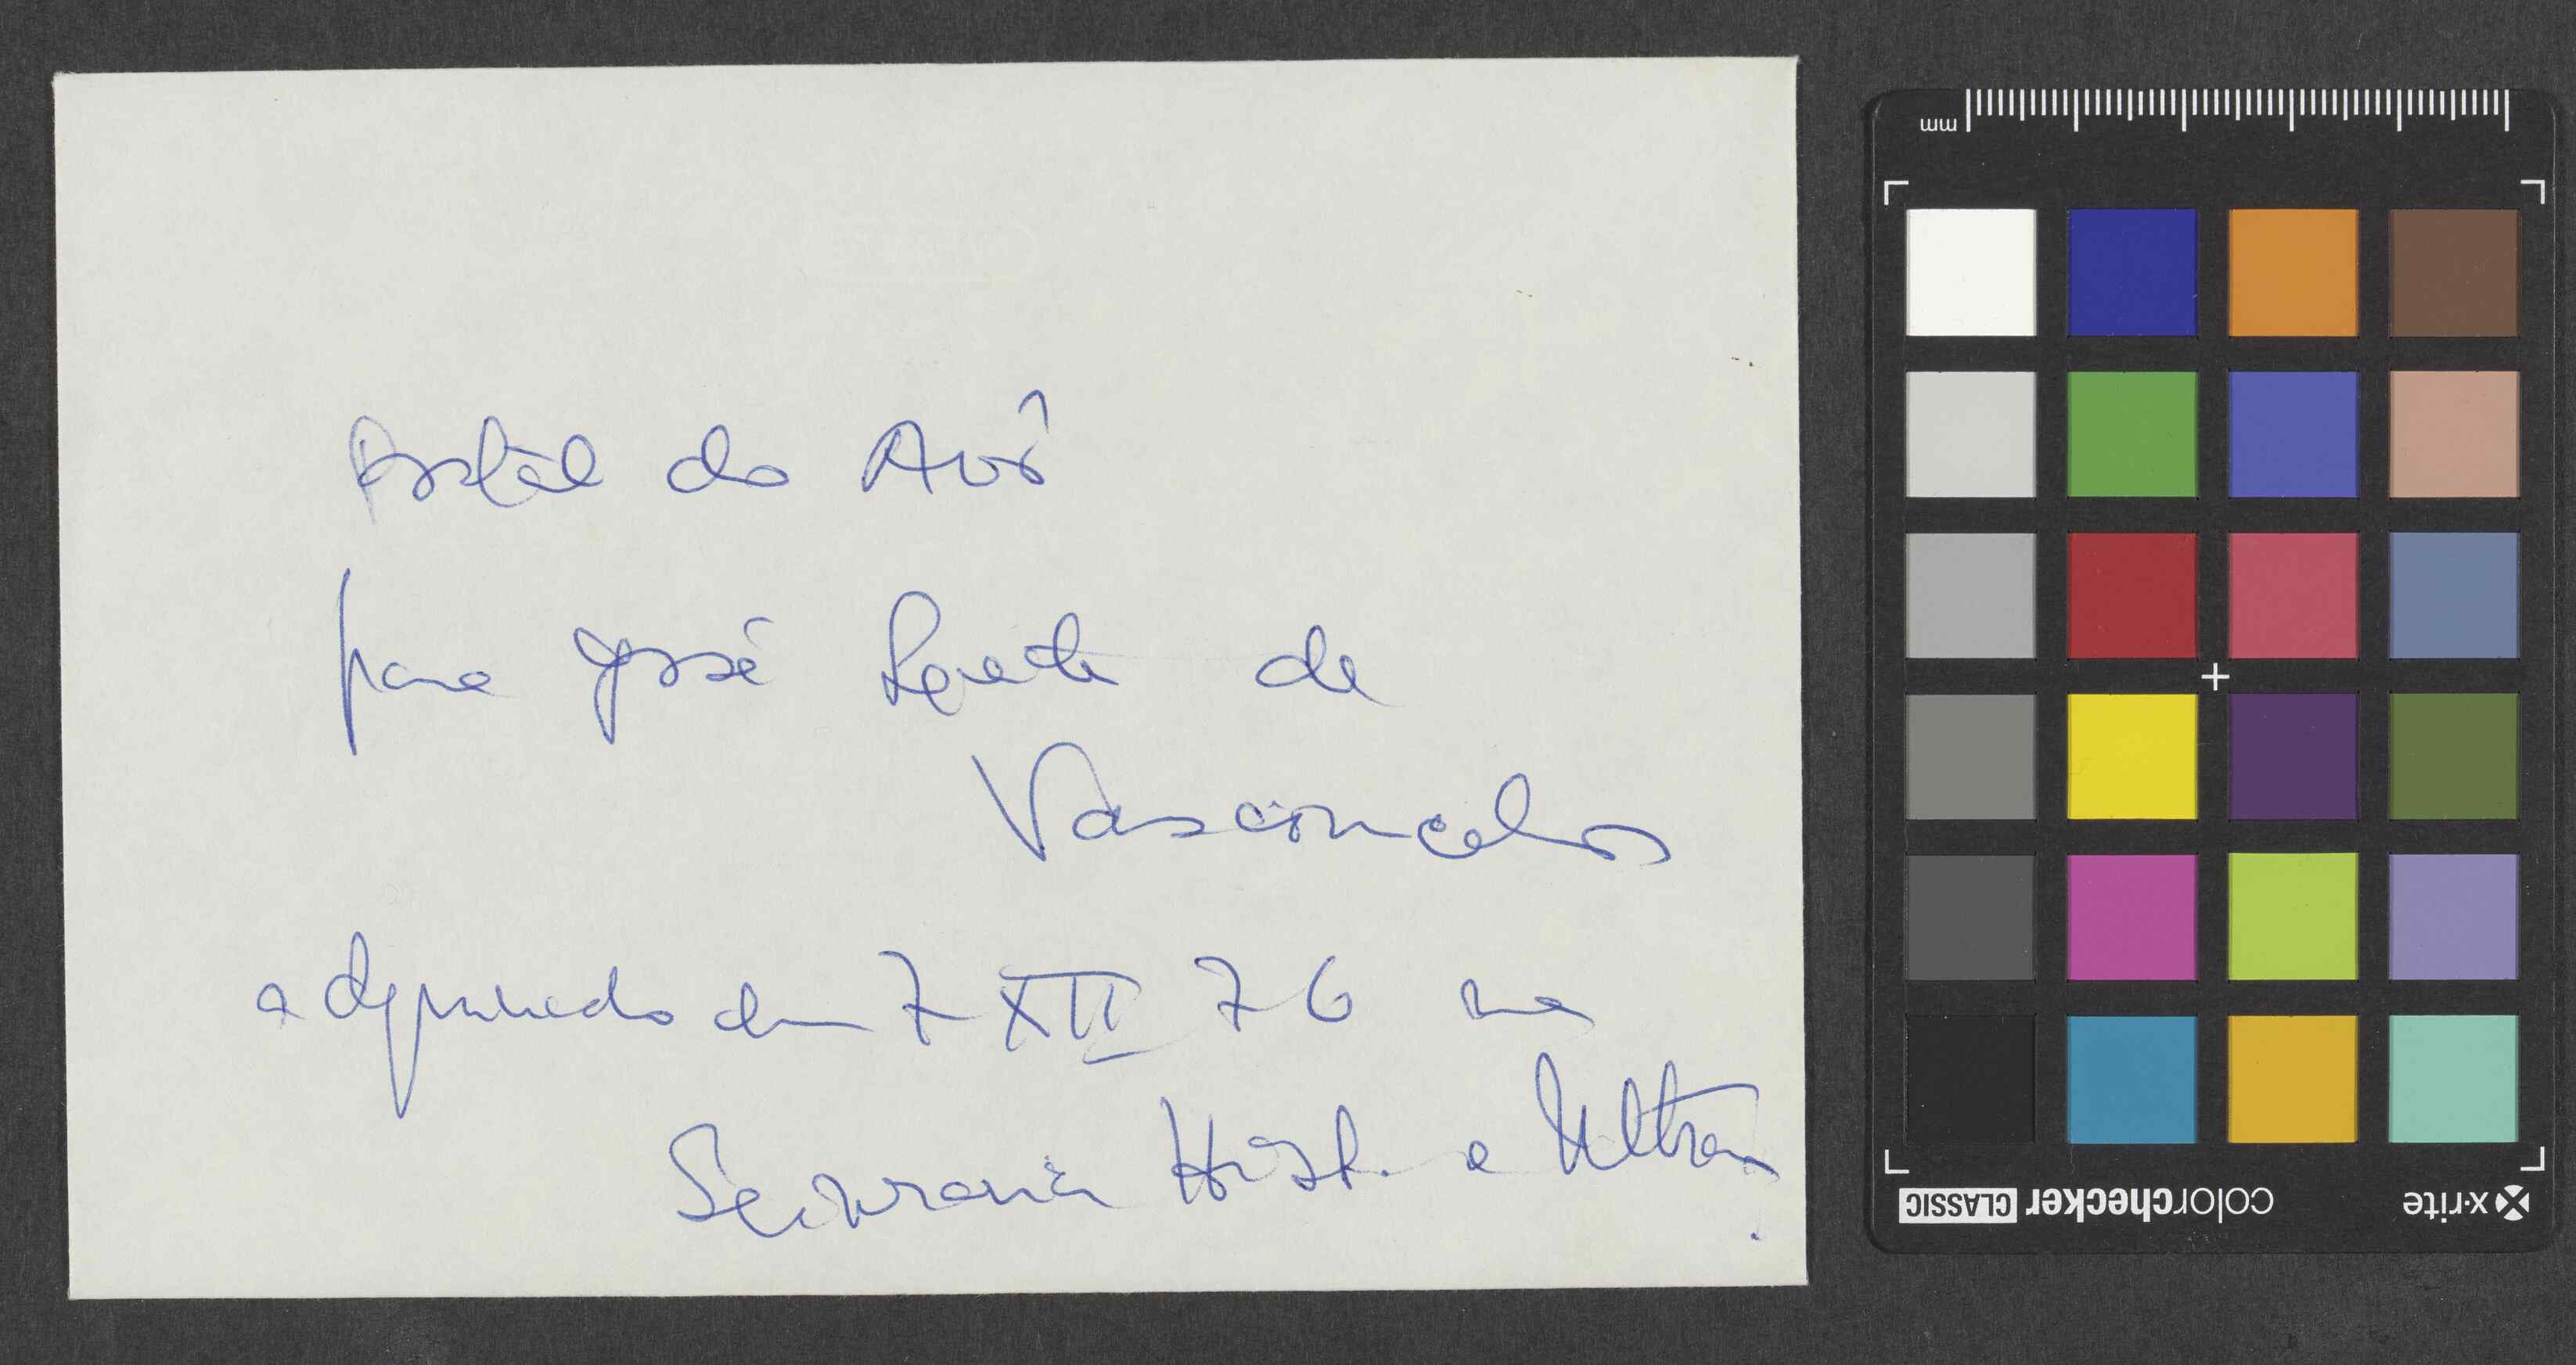 Postal do Avô
para José Leite de
Vasconcelos
adquirido em 7 XII 76 na
Livraria Hist. e Ultram.
mm
x·rite
colorchecker CLASSIC